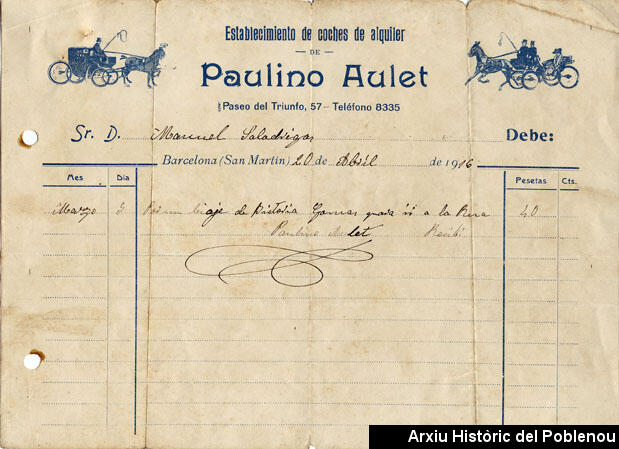 Establecimiento de coches de alquiler
DE
Paulino Aulet
Paseo del Triunfo, 57 - Teléfono 8335
Sr. D. Manuel Saladrigas Debe:
Barcelona (San Martín) 20 de Abril de 1916
Mes Día Pesetas Cts.
Marzo 3 Por un biaje de Victoria Gomas para ir a la 40
Paulino Aulet Recibí
Arxiu Històric del Poblenou